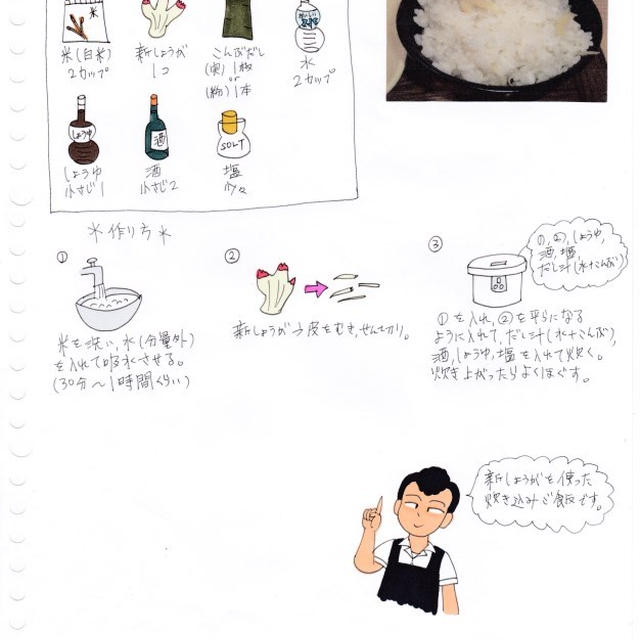 米
米(白米)
2カップ
新しょうが
1コ
こんぶだし
(実)1枚
or
(粉)1本
水
2カップ
しょうゆ
しょうゆ
小さじ1
酒
酒
小さじ2
SOLT
塩
少々
*作り方*
①
米を洗い、水(分量外)
を入れて吸水させる。
(30分〜1時間くらい)
②
新しょうがう皮をむき、せん切り。
③
①,②,しょうゆ,
酒,塩,
だし汁(水+こんぶ)
①を入れ,②を平らになる
ように入れて,だし汁(水+こんぶ),
酒,しょうゆ,塩を入れて炊く。
炊き上がったらよくほぐす。
新しょうがを使った
炊き込みご飯です。